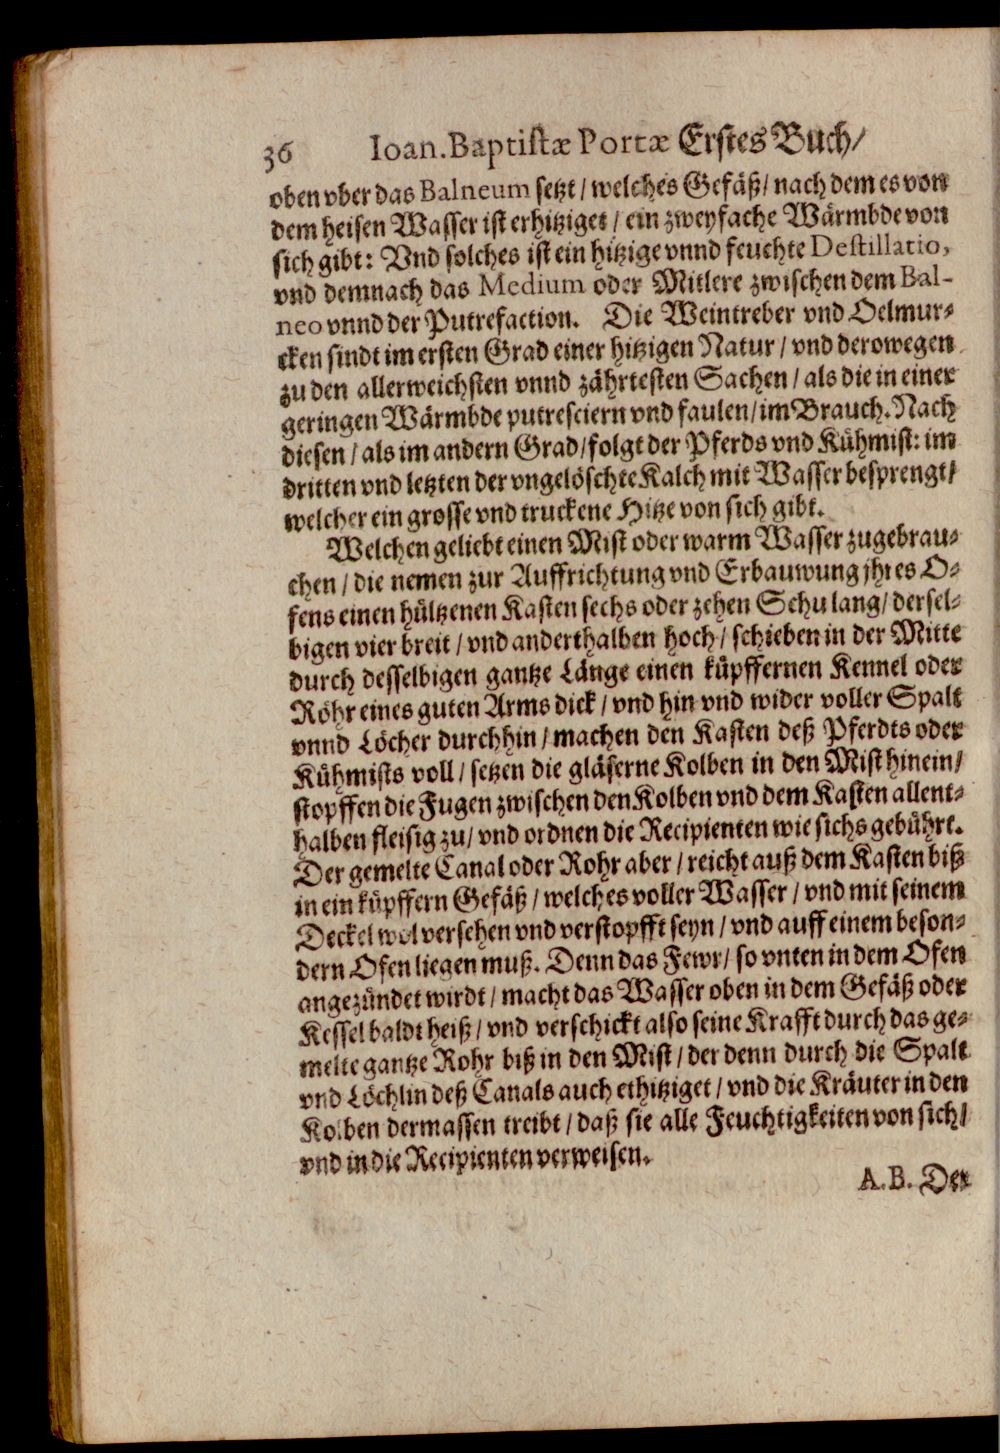 36 Ioan. Baptistæ Portæ Erstes Buch/
oben vber das Balneum setzt / welches Gefäß / nach dem es von
dem heisen Wasser ist erhitziget / ein zweyfache Wärmbde von
sich gibt: Vnd solches ist ein hitzige vnnd feuchte Destillatio,
vnd demnach das Medium oder Mitlere zwischen dem Bal-
neo vnnd der Putrefaction. Die Weintreber vnd Oelmur-
cken sindt im ersten Grad einer hitzigen Natur / vnd derowegen
zu den allerweichsten vnnd zährtesten Sachen / als die in einer
geringen Wärmbde putresciern vnd faulen / im Brauch. Nach
diesen / als im andern Grad / folgt der Pferds vnd Kühmist: im
dritten vnd letzten der vngelöschte Kalch mit Wasser besprengt /
welcher ein grosse vnd truckene Hitze von sich gibt.
Welchen geliebt einen Mist oder warm Wasser zugebrau-
chen / die nemen zur Auffrichtung vnd Erbauwung jhres O-
fens einen hültzenen Kasten sechs oder zehen Schu lang / dersel-
bigen vier breit / vnd anderthalben hoch / schieben in der Mitte
durch desselbigen gantze Länge einen küpffernen Kennel oder
Röhr eines guten Arms dick / vnd hin vnd wider voller Spalt
vnnd Löcher durchhin / machen den Kasten deß Pferdts oder
Kühmists voll / setzen die gläserne Kolben in den Mist hinein /
stopffen die Fugen zwischen den Kolben vnd dem Kasten allent-
halben fleisig zu / vnd ordnen die Recipienten wie sichs gebührt.
Der gemelte Canal oder Rohr aber / reicht auß dem Kasten biß
in ein küpffern Gefäß / welches voller Wasser / vnd mit seinem
Deckel wol versehen vnd verstopfft seyn / vnd auff einem beson-
dern Ofen liegen muß. Denn das Fewr / so vnten in dem Ofen
angezündet wirdt / macht das Wasser oben in dem Gefäß oder
Kessel baldt heiß / vnd verschickt also seine Krafft durch das ge-
melte gantze Rohr biß in den Mist / der denn durch die Spalt
vnd Löchlin deß Canals auch erhitziget / vnd die Kräuter in den
Kolben dermassen treibt / daß sie alle Feuchtigkeiten von sich /
vnd in die Recipienten verweisen.
A.B. Der